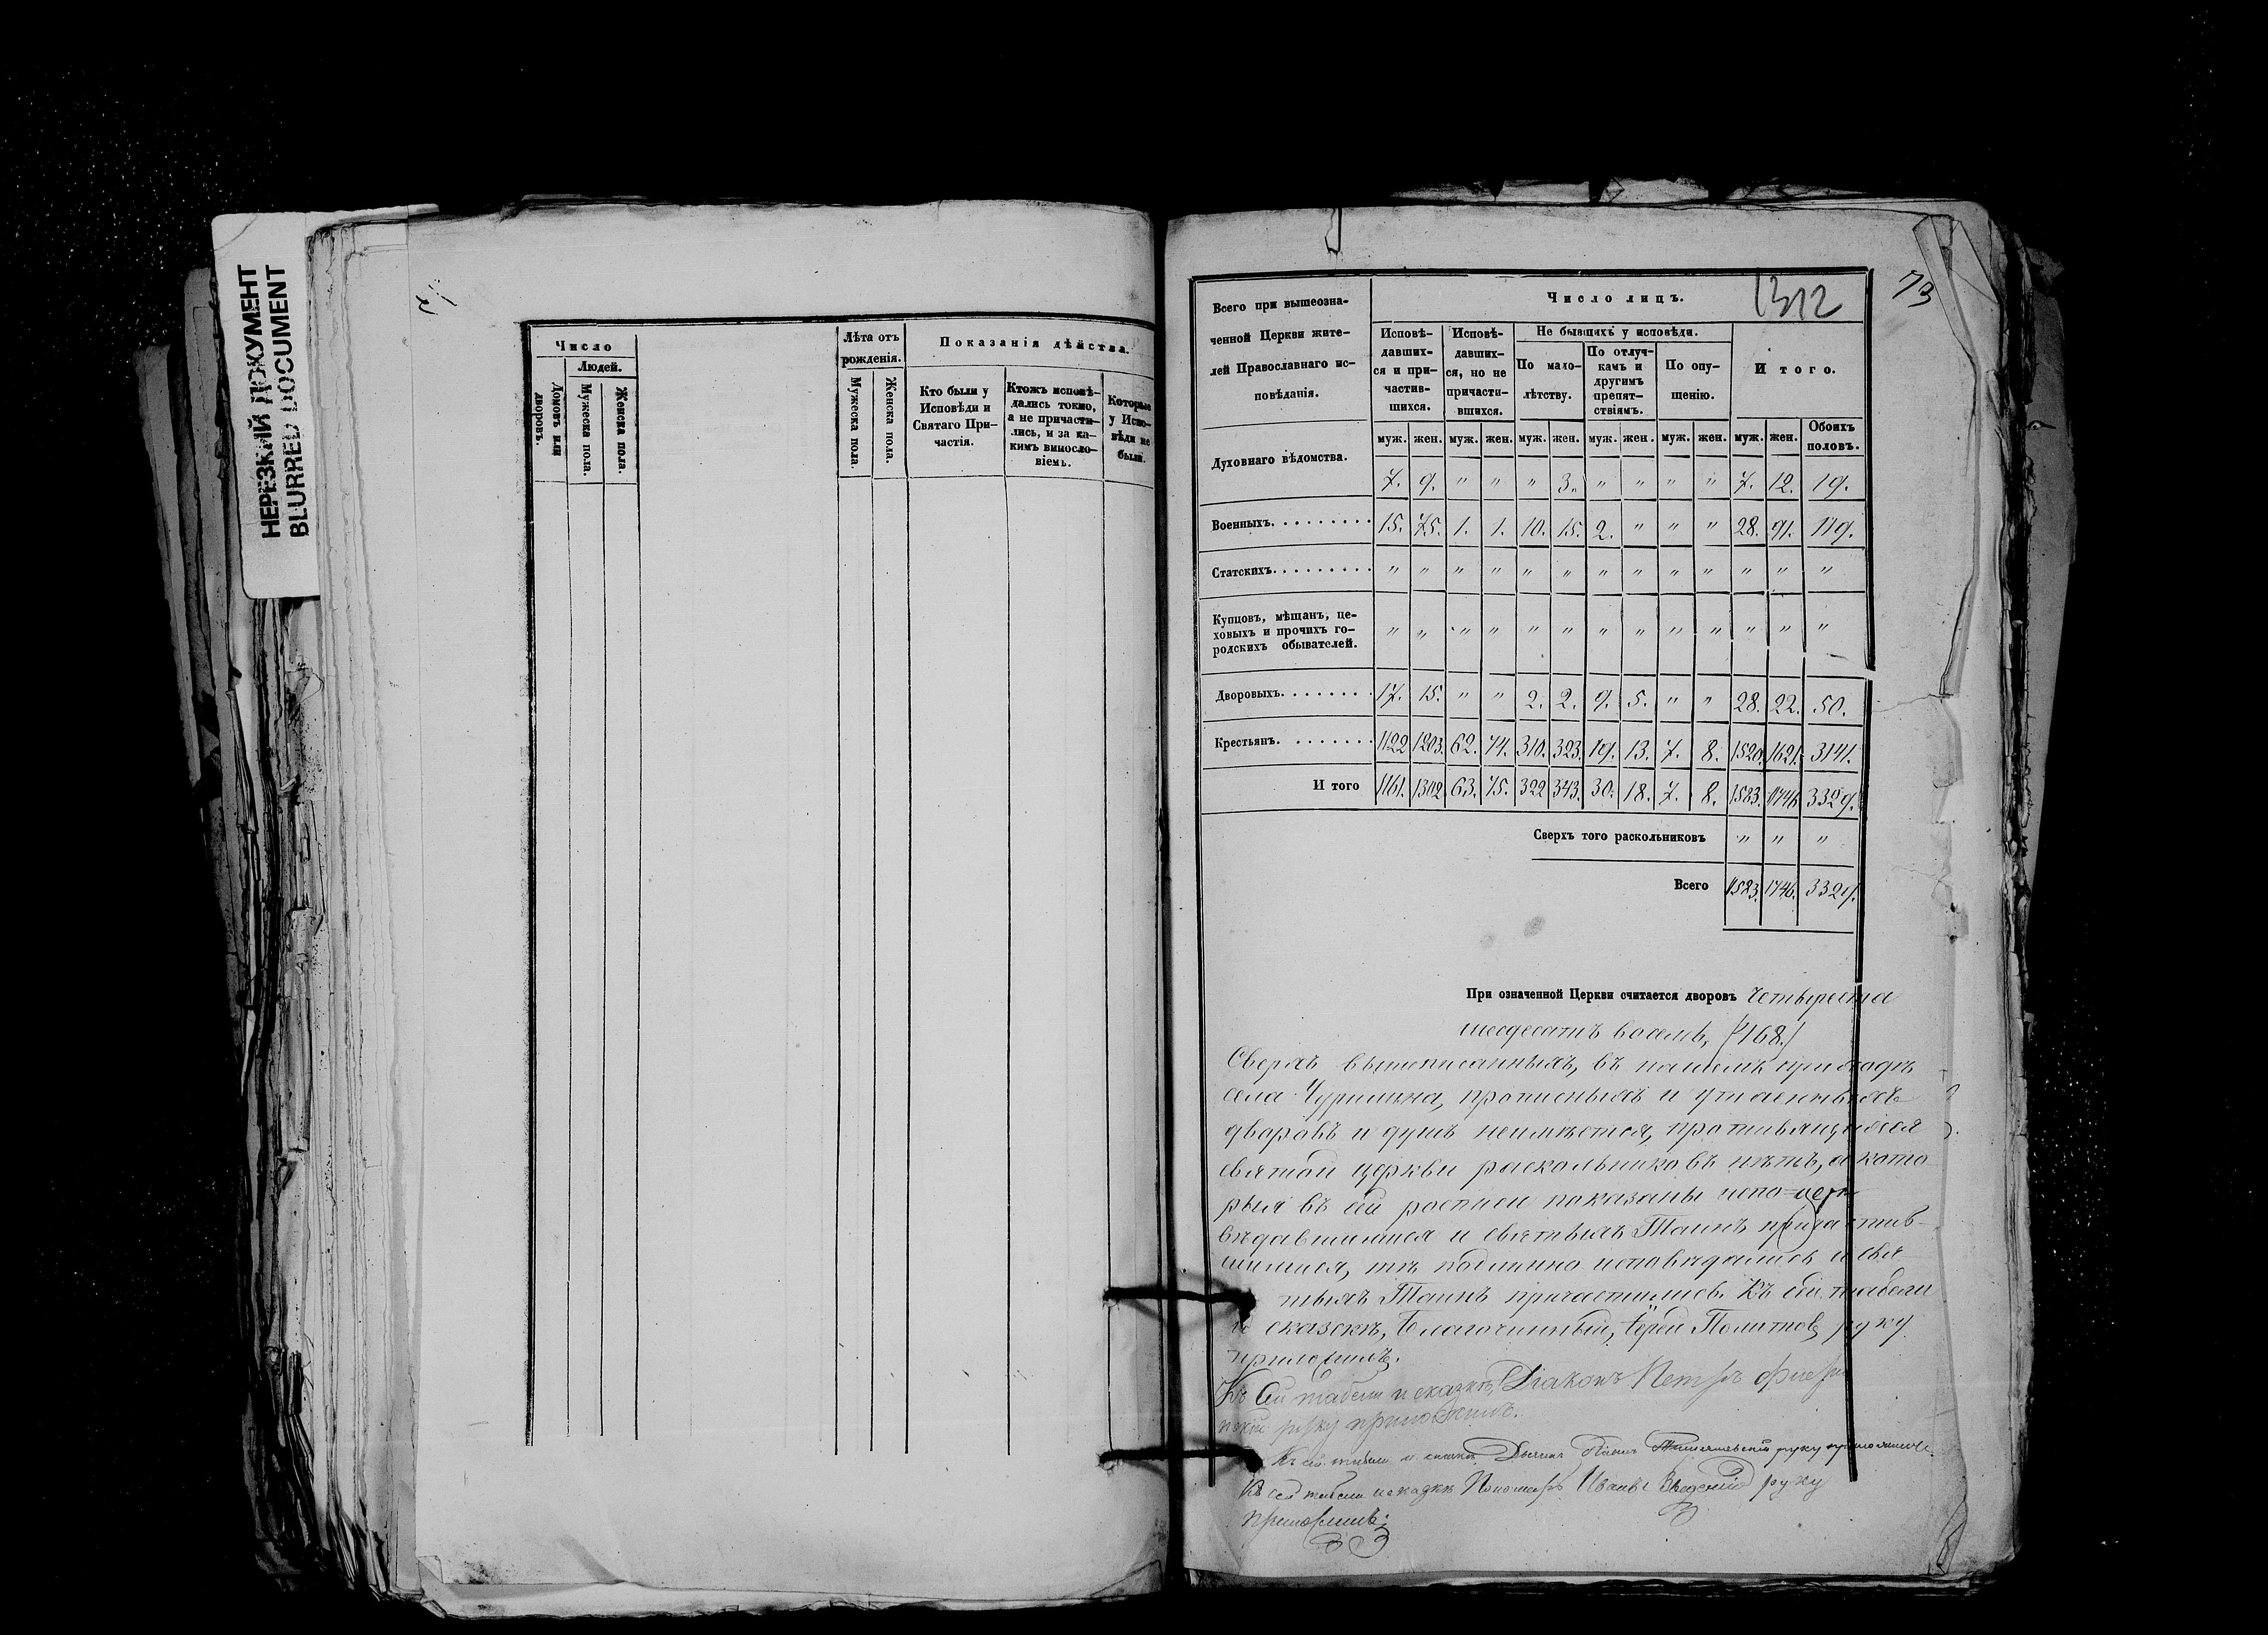 НЕРЕЗКИЙ ДОКУМЕНТ
BLURRED DOCUMENT
Число
Людей.
Домовъ или дворовъ.
Мужеска пола.
Женска пола.
Лѣта отъ рожденія.
Мужеска пола.
Женска пола.
Показанія дѣйства.
Кто были у Исповѣди и Святаго Причастія.
Ктожъ исповѣдались токмо, а не причастились, и за какимъ винословіемъ.
Которые у Исповѣди не были.
1312
73
Всего при вышеозначенной Церкви жителей Православнаго исповѣданія.
Число лицъ.
Исповѣдавшихся и причастившихся.
Исповѣдавшихся, но не причастившихся.
Не бывшихъ у исповѣди.
По малолѣтству.
По отлучкамъ и другимъ препятствіямъ.
По опущенію.
Итого.
муж. жен. муж. жен. муж. жен. муж. жен. муж. жен. муж. жен. Обоихъ половъ.
Духовнаго вѣдомства. 7. 9. " " " 3. " " " " 7. 12. 19.
Военныхъ. 15. 75. 1. 1. 10. 15. 2. " " " 28. 91. 119.
Статскихъ. " " " " " " " " " " " " "
Купцовъ, мѣщанъ, цеховыхъ и прочихъ городскихъ обывателей. " " " " " " " " " " " " "
Дворовыхъ. 17. 15. " " 2. 2. 9. 5. " " 28. 22. 50.
Крестьянъ. 1122 1203. 62. 74. 310. 323. 19. 13. 7. 8. 1520. 1621. 3141.
Итого 1161. 1302. 63. 75. 322 343. 30. 18. 7. 8. 1583. 1746 3329.
Сверхъ того раскольниковъ " " "
Всего 1583. 1746. 3329.
При означенной Церкви считается дворовъ четыреста
шесдесятъ восемь, (468.)
Сверхъ вышеписанныхъ, въ нашемъ приходѣ
села Чурилина, прописныхъ и утаенныхъ
дворовъ и душъ неимѣется, противящихся
святой церкви раскольниковъ нѣтъ, а кото
рыя въ сей росписи показаны испо=
вѣдавшимися и святыхъ Таинъ причастив-
шимися, тѣ подлинно исповѣдались и свя
тыхъ Таинъ причастились. Къ сей табели
и сказкѣ, Благочинный, Іерей Политовъ руку
приложилъ.
Къ сей табели и сказкѣ, Діаконъ Петръ
руку приложилъ.
Къ сей табели и сказкѣ Дьячекъ руку приложилъ.
Къ сей табели и сказкѣ Пономарь Иванъ Введенскій руку
приложилъ.